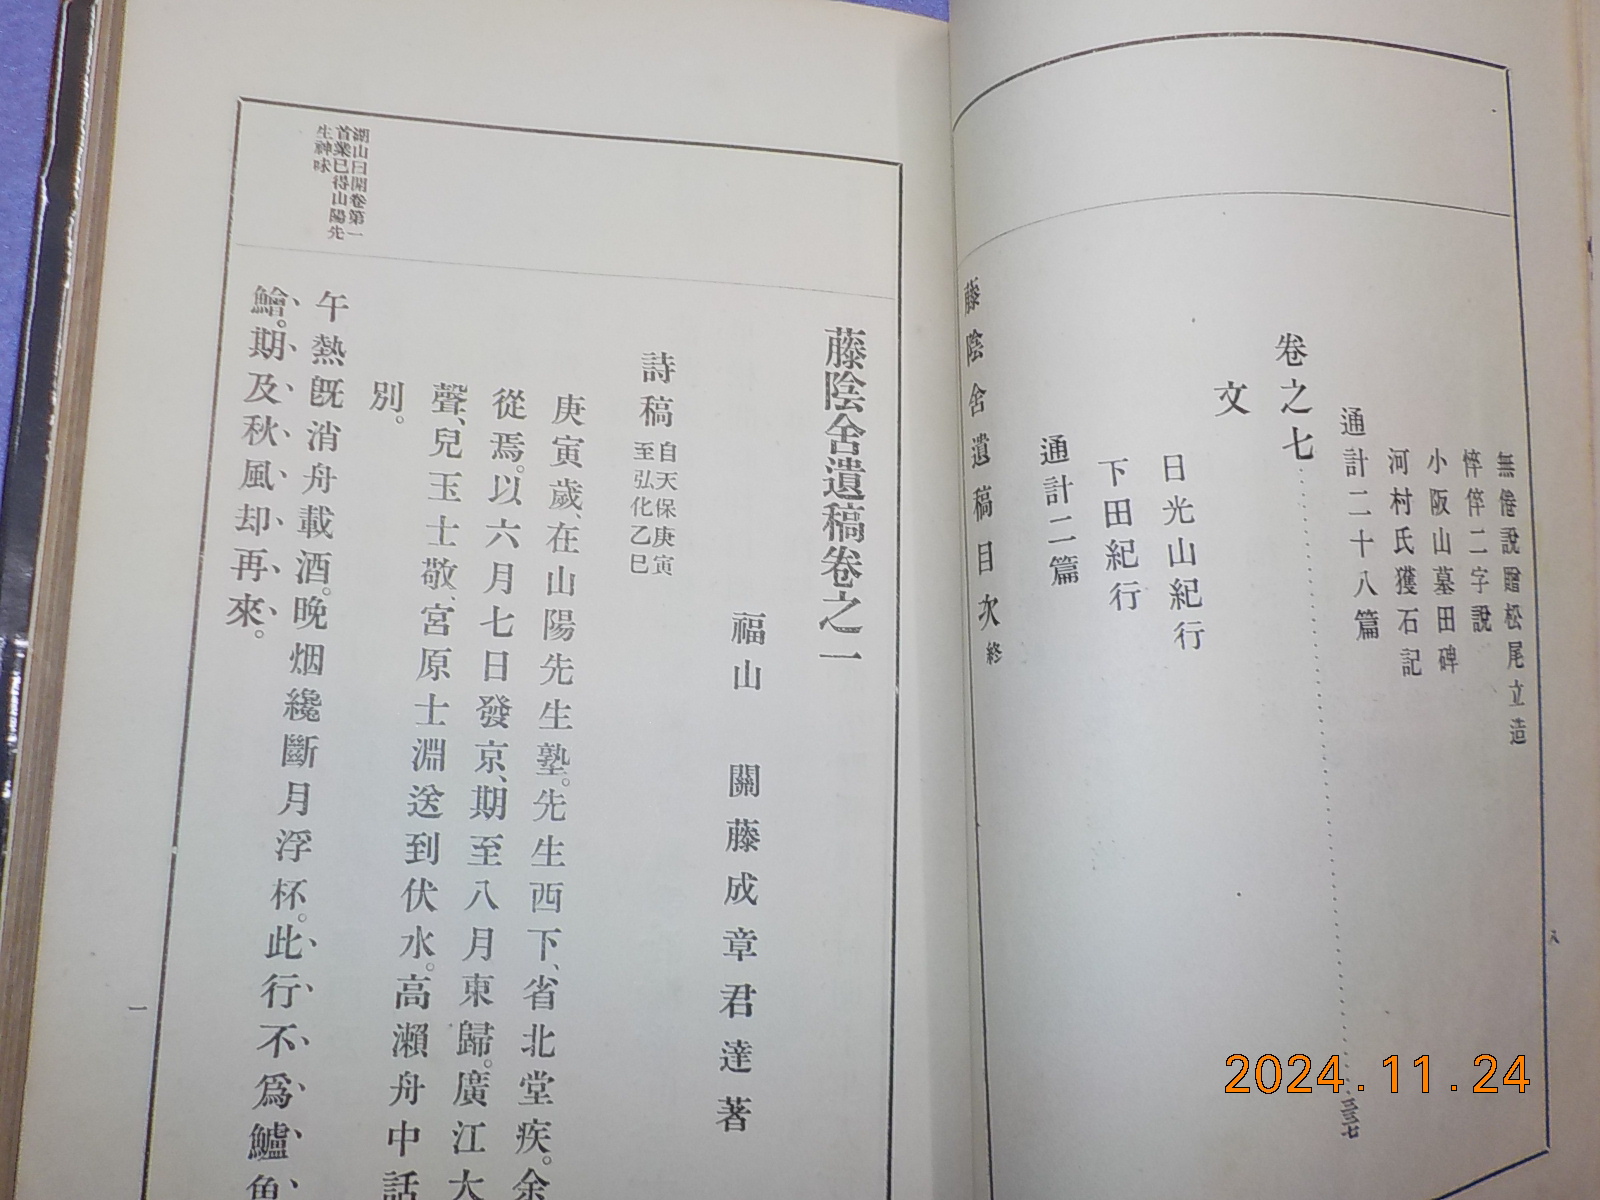 無倦說贈松尾立造
悴倅二字說
小阪山墓田碑
河村氏獲石記
通計二十八篇
卷之七
三三七
文
日光山紀行
下田紀行
通計二篇
藤陰舍遺稿目次終
八
藤陰舍遺稿卷之一
福山 關藤成章君達著
詩稿 自天保庚寅
至弘化乙巳
庚寅歲、在山陽先生塾。先生西下、省北堂疾。余
從焉。以六月七日發京、期至八月東歸。廣江大
聲、兒玉士敬、宮原士淵送到伏水。高瀨舟中話
別。
午熱旣消舟載酒。晚烟纔斷月浮杯。此行不爲鱸魚
鱠。期及秋風却再來。
湖山曰開卷第一
首業已得山陽先
生神味
一
2024.11.24